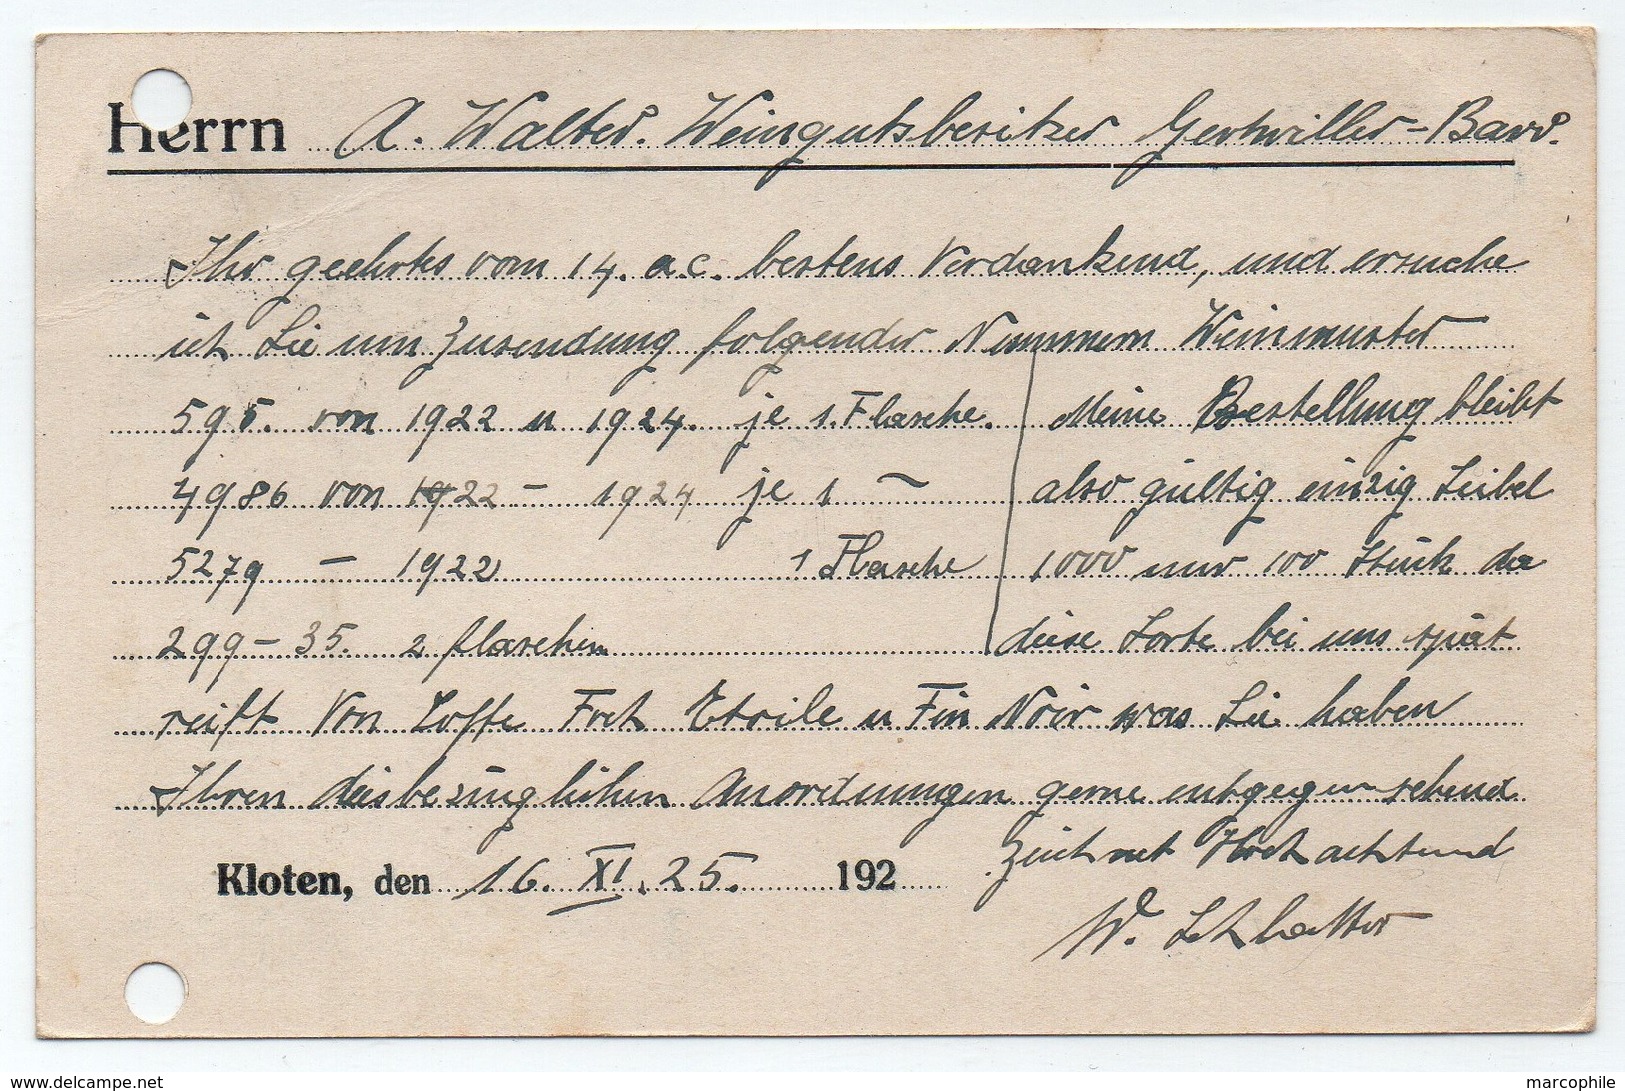 Herrn A. Walter. Weingutsbesitzer Gertwiller-Barr.
Ihr geehrtes vom 14. a.c. bestens Verdankend, und ersuche
ich Sie um Zusendung folgender Nummern Weinmuster
595. von 1922 u 1924. je 1. Flasche.
4986 von 1922 - 1924 je 1 ~
5279 - 1922 1 Flasche
299-35. 2 flaschen
Meine Bestellung bleibt
also gültig einzig Seibel
1000 nur 100 Stück da
diese Sorte bei uns spät
reift Von Foch Etoile u Pin Noir was Sie haben
Ihren diesbezüglichen Anordnungen gerne entgegensehend
zeichnet Hochachtend
Kloten, den 16. XI. 25. 192
W. Schlatter
www.delcampe.net
marcophile